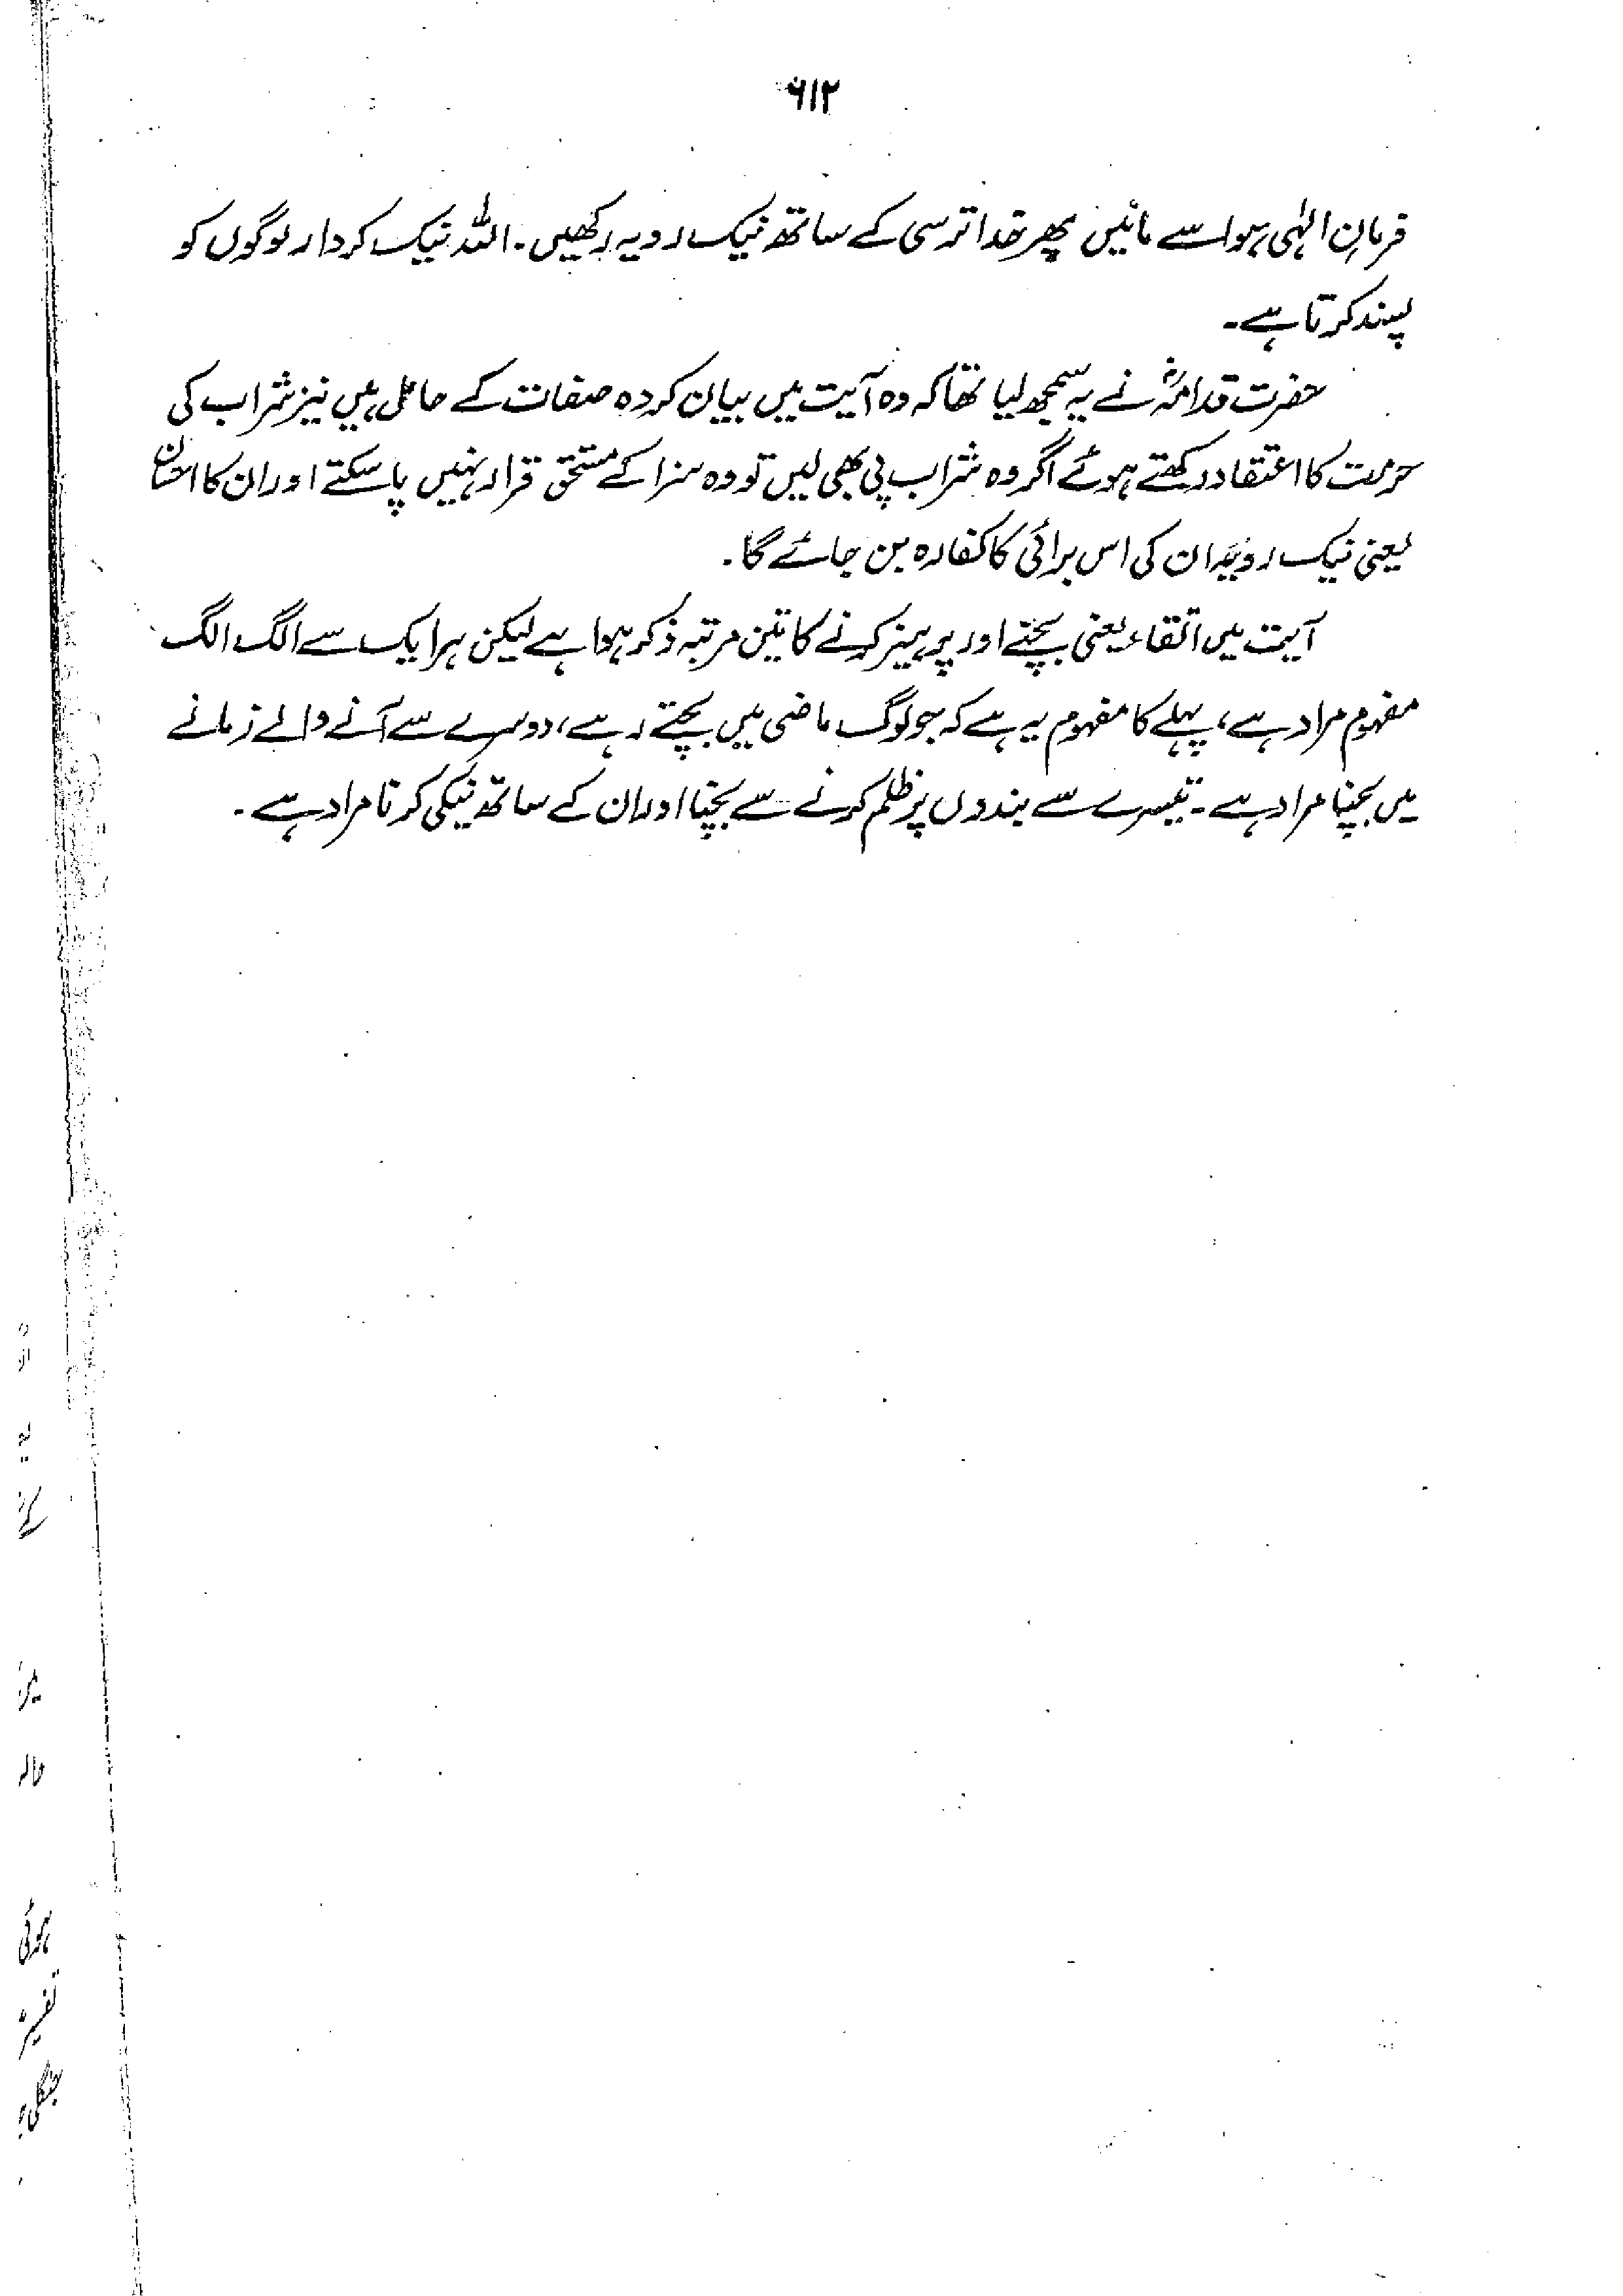 ۶۱۲
فرمانِ الہٰی ہو اسے مانیں پھر خدا ترسی کے ساتھ نیک رویہ رکھیں۔ اللہ نیک کردار لوگوں کو
پسند کرتا ہے۔
حضرت قدامہؓ نے یہ سمجھ لیا تھا کہ وہ آیت میں بیان کردہ صفات کے حامل ہیں نیز شراب کی
حرمت کا اعتقاد رکھتے ہوئے اگر وہ شراب پی بھی لیں تو وہ سزا کے مستحق قرار نہیں پا سکتے اور ان کا احسان
یعنی نیک رویّہ ان کی اس برائی کا کفارہ بن جائے گا۔
آیت میں اتقاء یعنی بچنے اور پرہیز کرنے کا تین مرتبہ ذکر ہوا ہے لیکن ہر ایک سے الگ الگ
مفہوم مراد ہے، پہلے کا مفہوم یہ ہے کہ جو لوگ ماضی میں بچتے رہے، دوسرے سے آنے والے زمانے
میں بچنا مراد ہے۔ تیسرے سے بندوں پر ظلم کرنے سے بچنا اور ان کے ساتھ نیکی کرنا مراد ہے۔
ہوئی